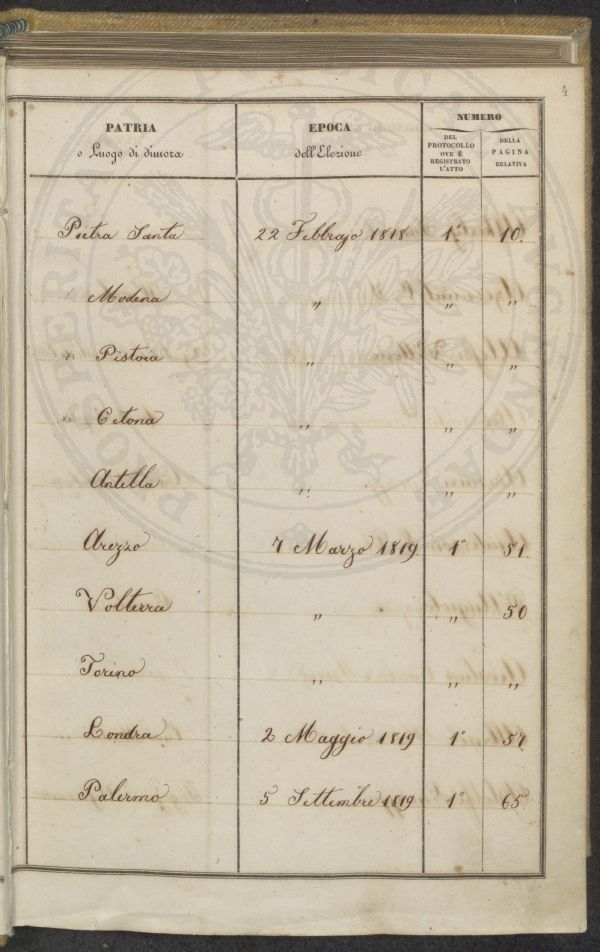 4
PATRIA
o Luogo di dimora
EPOCA
dell'Elezione
NUMERO
DEL
PROTOCOLLO
OVE È
REGISTRATO
L'ATTO
DELLA
PAGINA
RELATIVA
Pietra Santa 22 Febbrajo 1818 1° 10.
Modena „ „ „
Pistoia „ „ „
Cetona „ „ „
Antella „ „ „
Arezzo 7 Marzo 1819 1° 51.
Volterra „ „ 50
Torino „ „ „
Londra 2 Maggio 1819 1° 57
Palermo 5 Settembre 1819 1° 65